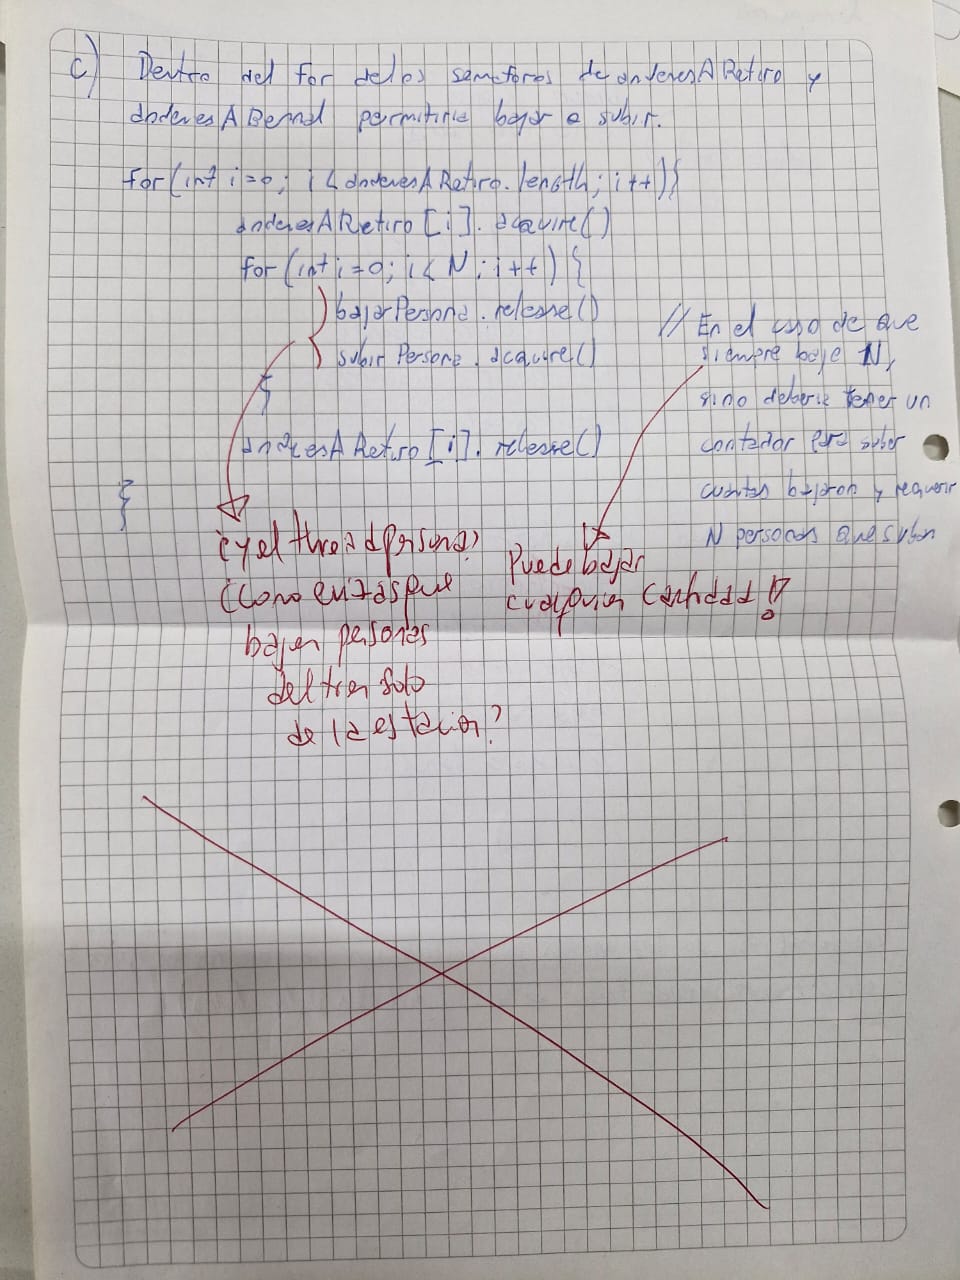 c) Dentro del for de los semaforos de andenesARetiro y
andenesABernal permitiria bajar o subir.
for(int i=0; i < andenesARetiro.length; i++){
andenesARetiro[i].acquire()
for(int i=0; i< N; i++) {
bajarPersona.release()
subirPersona.acquire()
}
andenesARetiro[i].release()
}
// En el caso de que
siempre baje N,
sino deberia tener un
contador para saber
cuantas bajaron y requerir
N personas que suban
¿y el thread persona?
¿Como evitas que
bajen personas
del tren solo
de la estacion?
Puede bajar
cualquier cantidad!